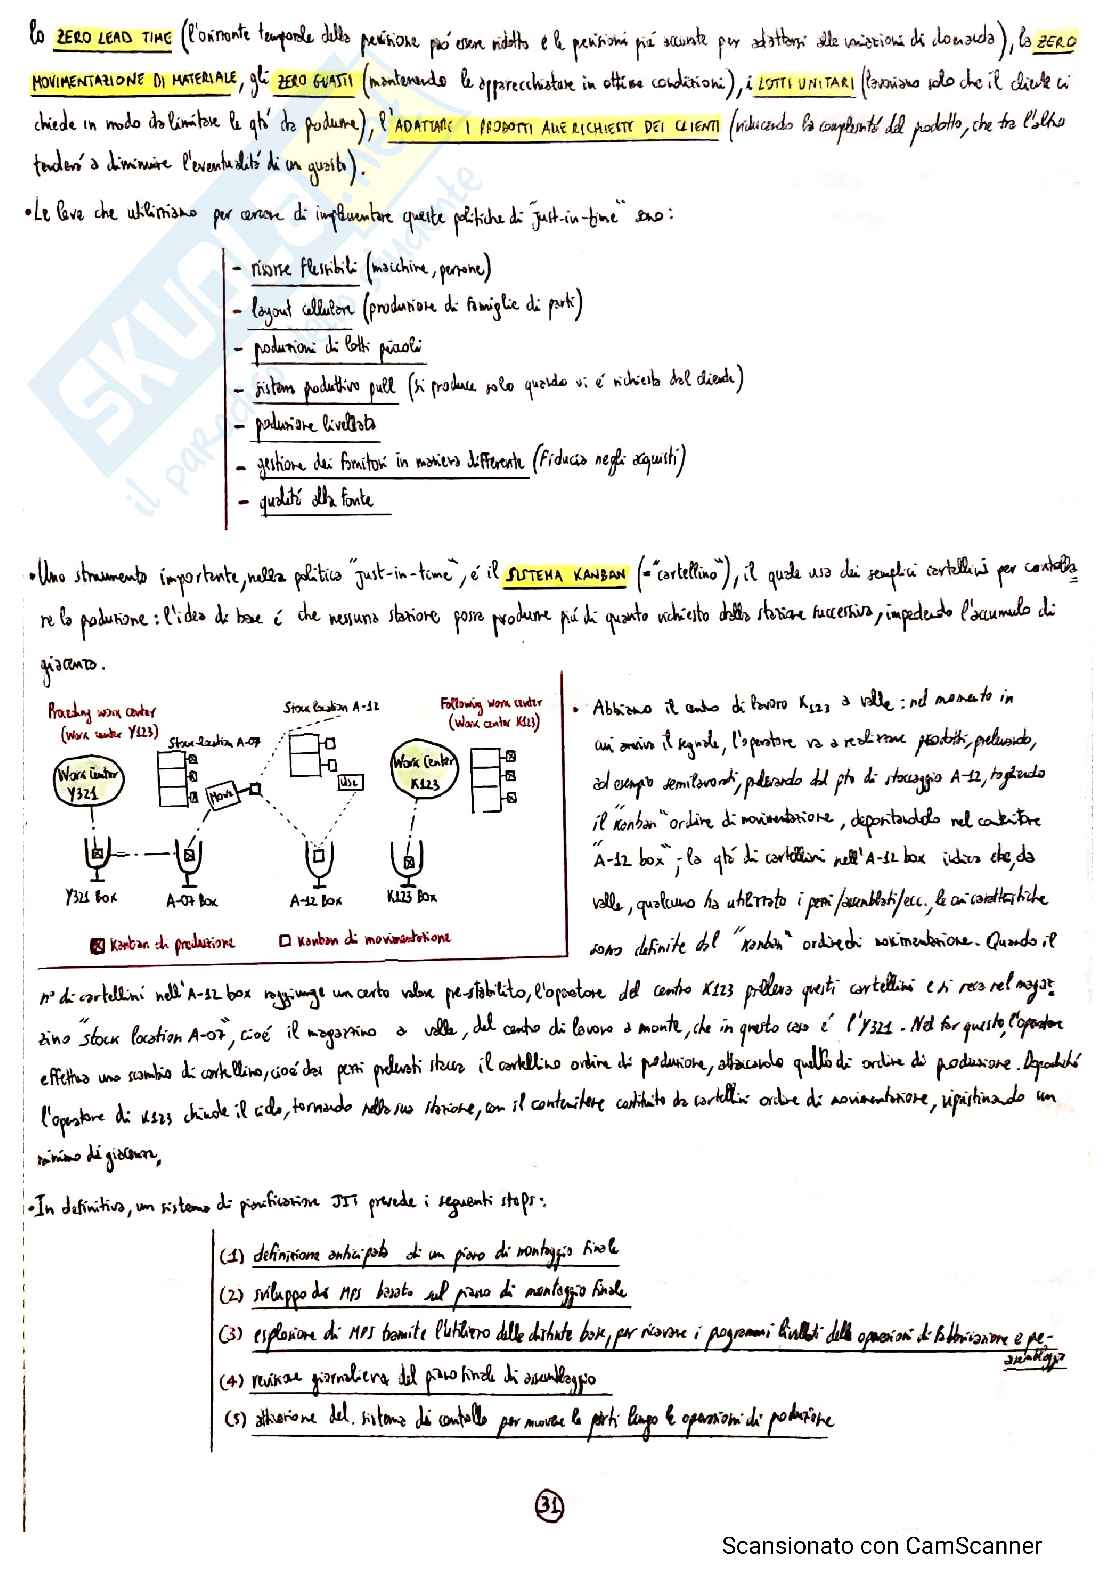 lo ZERO LEAD TIME (l'orizzonte temporale della previsione può essere ridotto e le previsioni più accurate per adattarsi alle variazioni di domanda), la ZERO
MOVIMENTAZIONE DI MATERIALE, gli ZERO GUASTI (mantenendo le apparecchiature in ottime condizioni), i LOTTI UNITARI (lavoriamo solo che il cliente ci
chiede in modo da limitare le qtà da produrre), l'ADATTARE I PRODOTTI ALLE RICHIESTE DEI CLIENTI (riducendo la complessità del prodotto, che tra l'altro
tenderà a diminuire l'eventualità di un guasto).
• Le leve che utilizziamo per cercare di implementare queste politiche di "just-in-time" sono:
- risorse flessibili (macchine, persone)
- layout cellulare (produzione di famiglie di parti)
- produzioni di lotti piccoli
- sistema produttivo pull (si produce solo quando vi è richiesta dal cliente)
- produzione livellata
- gestione dei fornitori in maniera differente (fiducia negli acquisti)
- qualità alla fonte
• Uno strumento importante, nella politica "just-in-time", è il SISTEMA KANBAN (="cartellino"), il quale usa dei semplici cartellini per controlla
re la produzione: l'idea di base è che nessuna stazione possa produrre più di quanto richiesto dalla stazione successiva, impedendo l'accumulo di
giacenza.
Preceding work center
(Work center Y123)
Stock location A-07
Stock location A-12
Following work center
(Work center K123)
Work Center
Y321
Move
Use
Work Center
K123
Y321 Box
A-07 Box
A-12 Box
K123 Box
Kanban di produzione
Kanban di movimentazione
• Abbiamo il centro di lavoro K123 a valle: nel momento in
cui arriva il segnale, l'operatore va a realizzare prodotti, prelevando,
ad esempio semilavorati, prelevando dal pto di stoccaggio A-12, togliendo
il "Kanban" ordine di movimentazione, depositandolo nel contenitore
"A-12 box"; la qtà di cartellini nell'A-12 box indica che, da
valle, qualcuno ha utilizzato i pezzi/assemblati/ecc., le cui caratteristiche
sono definite dal "Kanban" ordine di movimentazione. Quando il
n° di cartellini nell'A-12 box raggiunge un certo valore pre-stabilito, l'operatore del centro K123 preleva questi cartellini e si reca nel magaz
zino "stock location A-07", cioè il magazzino a valle, del centro di lavoro a monte, che in questo caso è l'Y321. Nel far questo, l'operatore
effettua uno scambio di cartellino, cioè dai pezzi prelevati stacca il cartellino ordine di produzione, attaccando quello di ordine di produzione. Dopodiché
l'operatore di K123 chiude il ciclo, tornando nella sua stazione, con il contenitore costituito da cartellini ordine di movimentazione, ripristinando un
minimo di giacenza,
• In definitiva, un sistema di pianificazione JIT prevede i seguenti steps:
(1) definizione anticipata di un piano di montaggio finale
(2) sviluppo di MPS basato sul piano di montaggio finale
(3) esplosione di MPS tramite l'utilizzo delle distinte base, per ricavare i programmi livellati delle operazioni di fabbricazione e pe-
assemblaggio
(4) revisione giornaliera del piano finale di assemblaggio
(5) attivazione del sistema di controllo per muovere le parti lungo le operazioni di produzione
31
Scansionato con CamScanner
SKUOLA.net
il paradiso dello studente